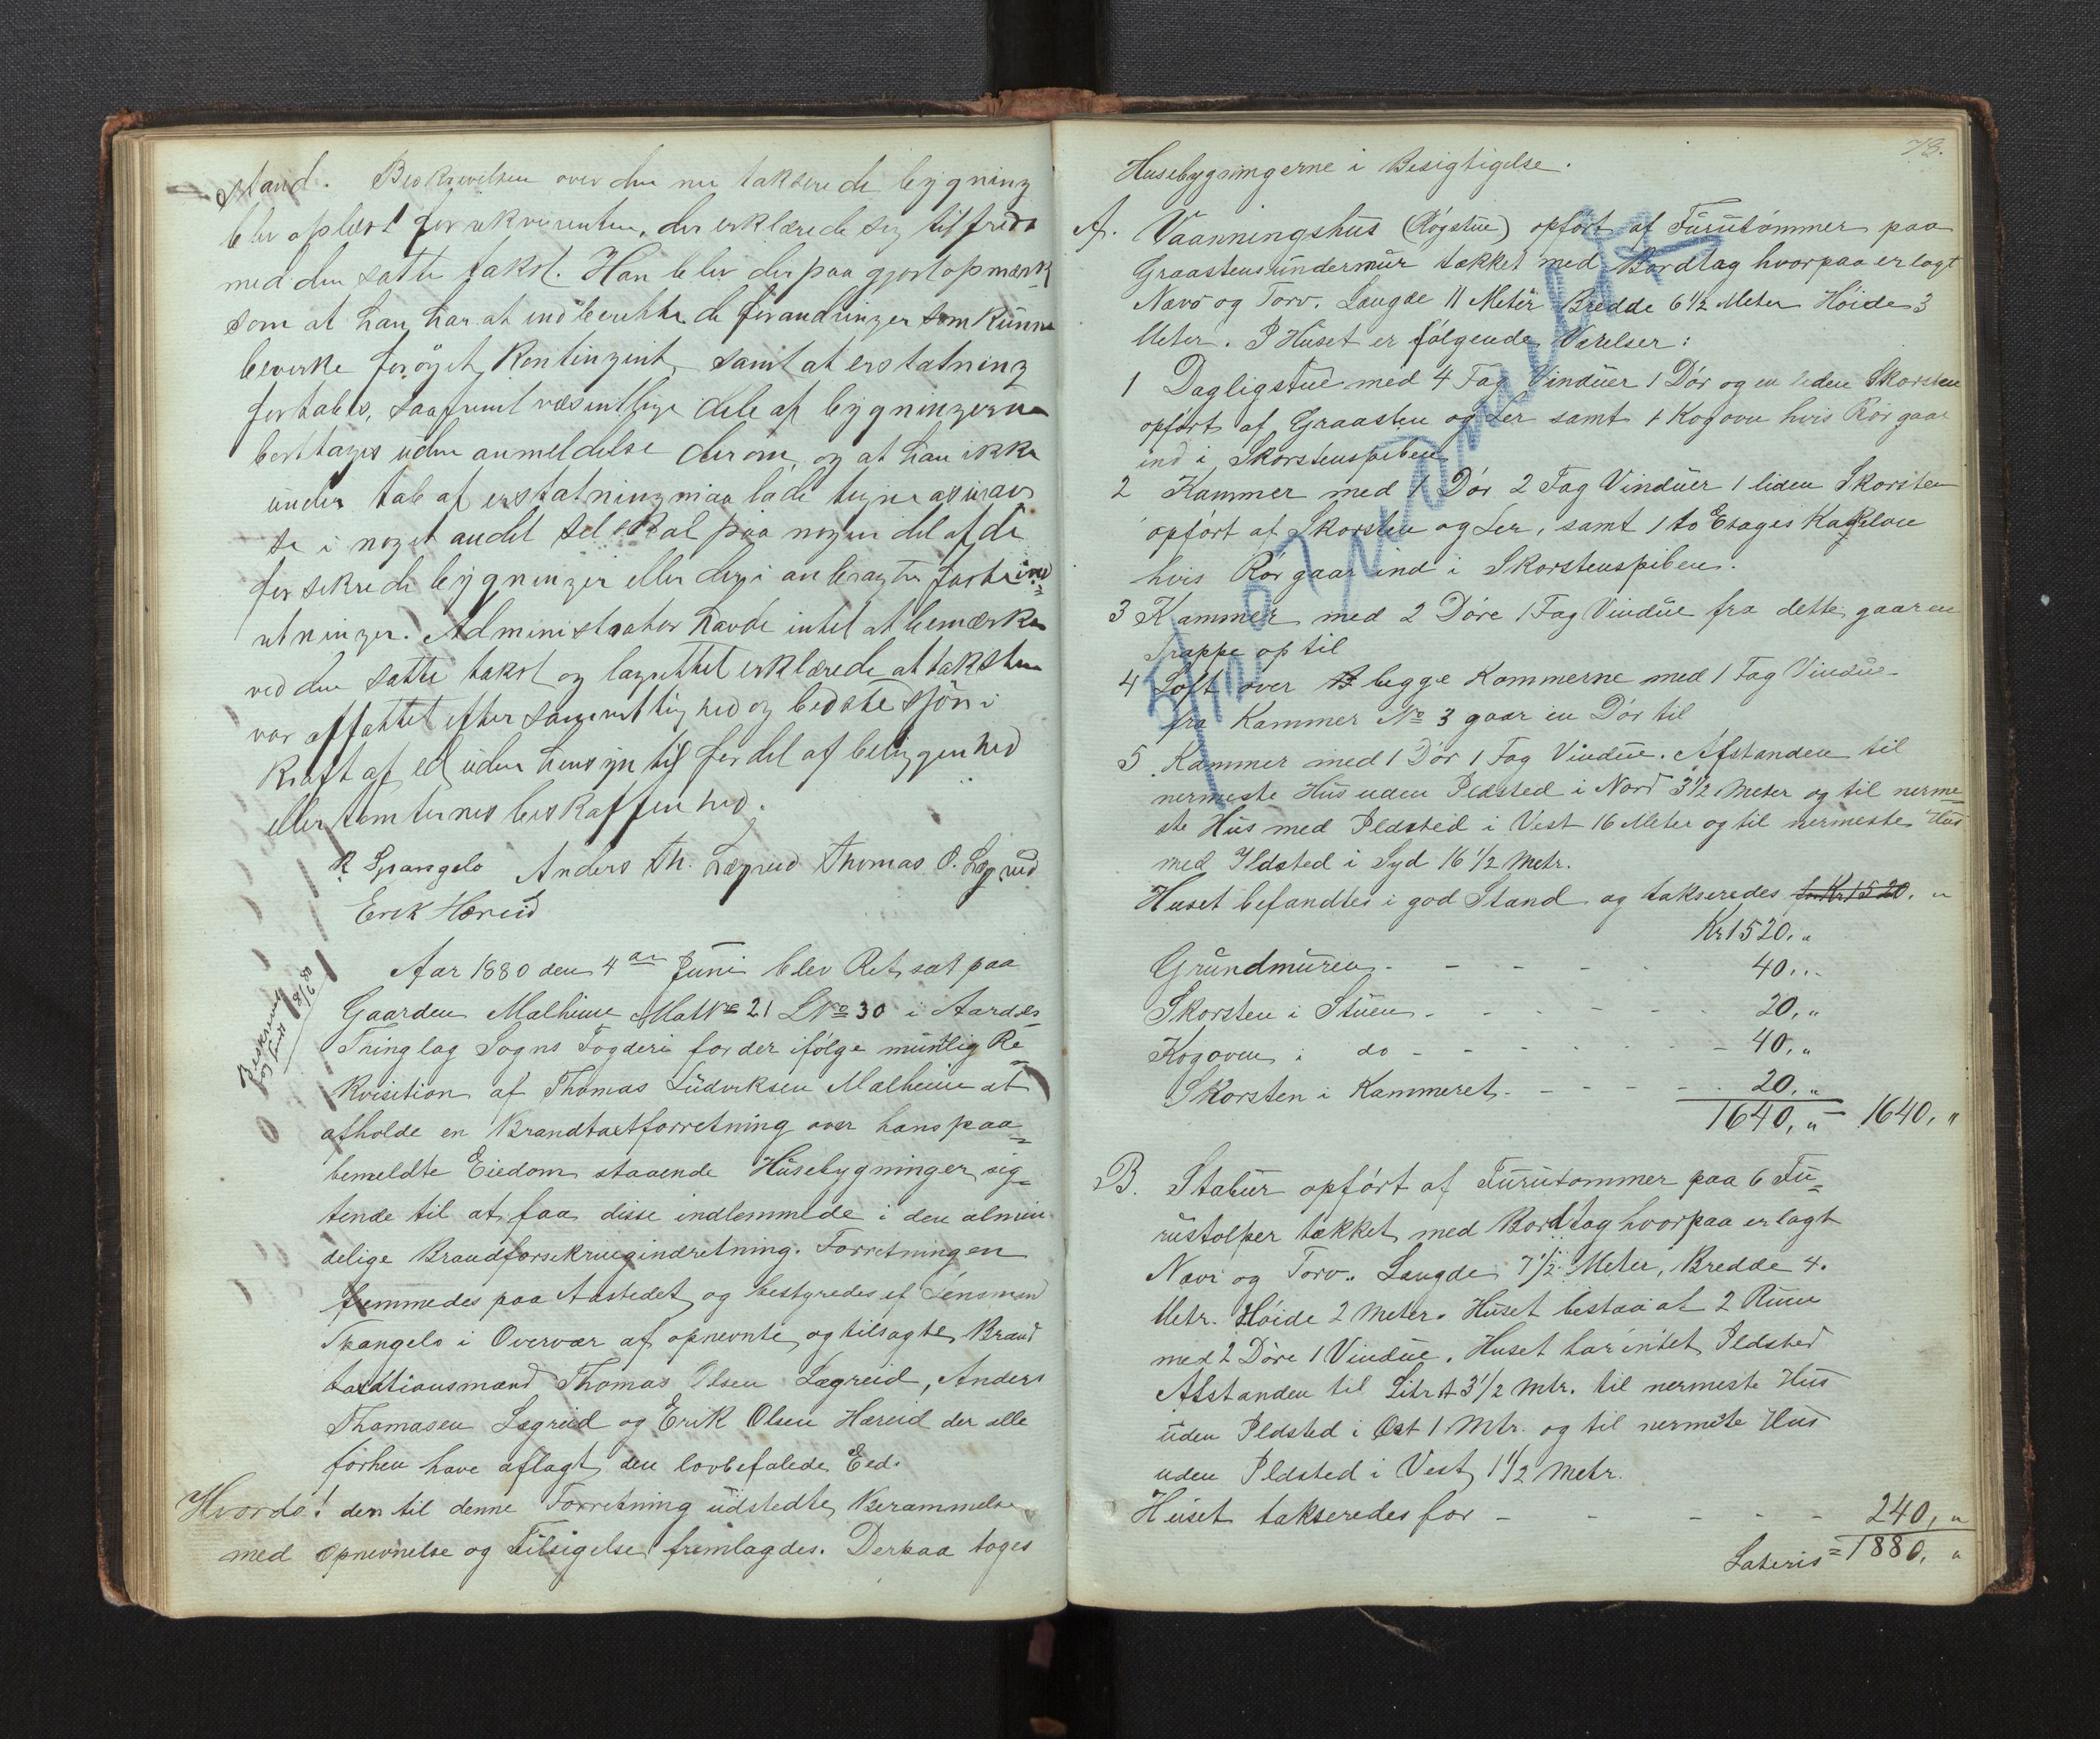 stand. Beskrivelsen over den nu takserede bygning
blev oplæst for rekvirenten, der erklærede sig tilfreds
med den satte takst. Han blev derpaa gjort opmærk
som at han har at indberette de forandringer som kunne
bevirke forøget Kontingent, samt at erstatning
fortabes, saafremt væsentlige dele af bygningerne
borttages uden anmeldelse derom, og at han ikke
under tab af erstatning maa lade tegne assuran
se i noget andet selskab paa nogen del af de
forsikrede bygninger eller deri anbragte faste ind=
retninger. Administrator havde intet at bemærke
ved den satte takst og lagrettet erklærede at taksten
var affattet efter samvittighed og bedste skjön i
Kraft af ed uden hensyn til fordel af beliggenhed
eller tomternes beskaffenhed.
R Spangelo Anders Th. Lægreid Thomas O. Lægreid
Erik Hæreid
Beskreven
og sendt 8/6 80
Aar 1880 den 4de Juni blev Ret sat paa
Gaarden Malheim Mat No 21 LNo 30 i Aardals
Thinglag Sogns Fogderi for der ifølge muntlig Re=
kvisition af Thomas Ludviksen Malheim at
afholde en Brandtaxtforretning over hans paa=
bemeldte Eiedom staaende Husebygninger sig=
tende til at faa disse indlemmede i den almin
delige Brandforsikringindretning. Forretningen
fremmedes paa Aastedet og bestyredes af Lensmand
Spangelo i Overvær af opnevnte og tilsagte Brand
taxtiansmænd Thomas Olsen Lægreid, Anders
Thomasen Lægreid og Erik Olsen Hæreid der alle
forhen have aflagt den lovbefalede Eed.
Hvorda! den til denne Forretning udstedte Berammelse
med Opnevnelse og Tilsigelse fremlagdes. Derpaa toges
78.
Husebygningerne i Besigtigelse.
A. Vaanningshus (Røgstue) opført af Furutømmer paa
Graastensundermur tækket med Bordtag hvorpaa er lagt
Næver og Torv. Længde 11 Meter Bredde 6 1/2 Meter Höide 3
Meter. I Huset er følgende Værelser:
1 Dagligstue med 4 Fag Vinduer 1 Dør og en liden Skorsten
opført af Graasten og Ler samt 1 Kogovn hvis Rör gaar
ind i Skorstenspiben
2 Kammer med 1 Dör 2 Fag Vinduer 1 liden Skorsten
opført af Skorsten og Ler, samt 1 to Etages Kakelovn
hvis Rör gaar ind i Skorstenspiben.
3 Kammer med 2 Döre 1 Fag Vindue fra dette gaar en
Trappe op til
4 Loft over begge Kammerne med 1 Fag Vindue
fra Kammer No 3 gaar en Dör til
5 Kammer med 1 Dör 1 Fag Vindue. Afstanden til
nermeste Hus uden Ildsted i Nord 3 1/2 Meter og til nerme=
ste Hus med Ildsted i Vest 16 Meter og til nermeste Hus
med Ildsted i Syd 16 1/2 Metr.
Huset befandtes i god Stand og takseredes for Kr 1520. "
Kr 1520. "
Grundmuren - - - - 40. "
Skorsten i Stuen - - - - 20. "
Kogoven i do - - - - 40. "
Skorsten i Kammeret - - - - 20. "
1640, " = 1640, "
B. Stabur opført af Furutømmer paa 6 Fu=
rustolper tækket med Bordtag hvorpaa er lagt
Næver og Torv. Længde 7 1/2 Meter, Bredde 4.
Metr. Höide 2 Meter. Huset bestaar af 2 Rum
med 2 Döre 1 Vindue. Huset har intet Ildsted
Afstanden til Litr A 3 1/2 Mtr. til nermeste Hus
uden Ildsted i Öst 1 Mtr. og til nermeste Hus
uden Ildsted i Vest 1 1/2 Metr.
Huset takseredes for - - - - - 240, "
Lateris = 1880, "